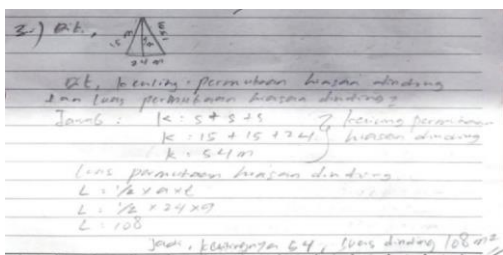 2.) Dit,
15 m 15 m
24 m
Dit, keliling permukaan hiasan dinding
dan luas permukaan hiasan dinding?
Jawab : K = s + s + s
K = 15 + 15 + 24 keliling permukaan
K = 54 m hiasan dinding
Luas permukaan hiasan dinding
L = 1/2 x a x t
L = 1/2 x 24 x 9
L = 108
Jadi, kelilingnya 54, luas dinding 108 m²